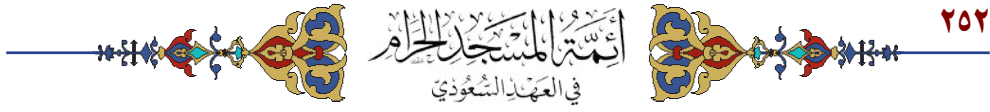 ٢٥٢
أَئِمَّةُ المَسْجِدِ الحَرَامِ
فِي العَهْدِ السُّعُودِيِّ